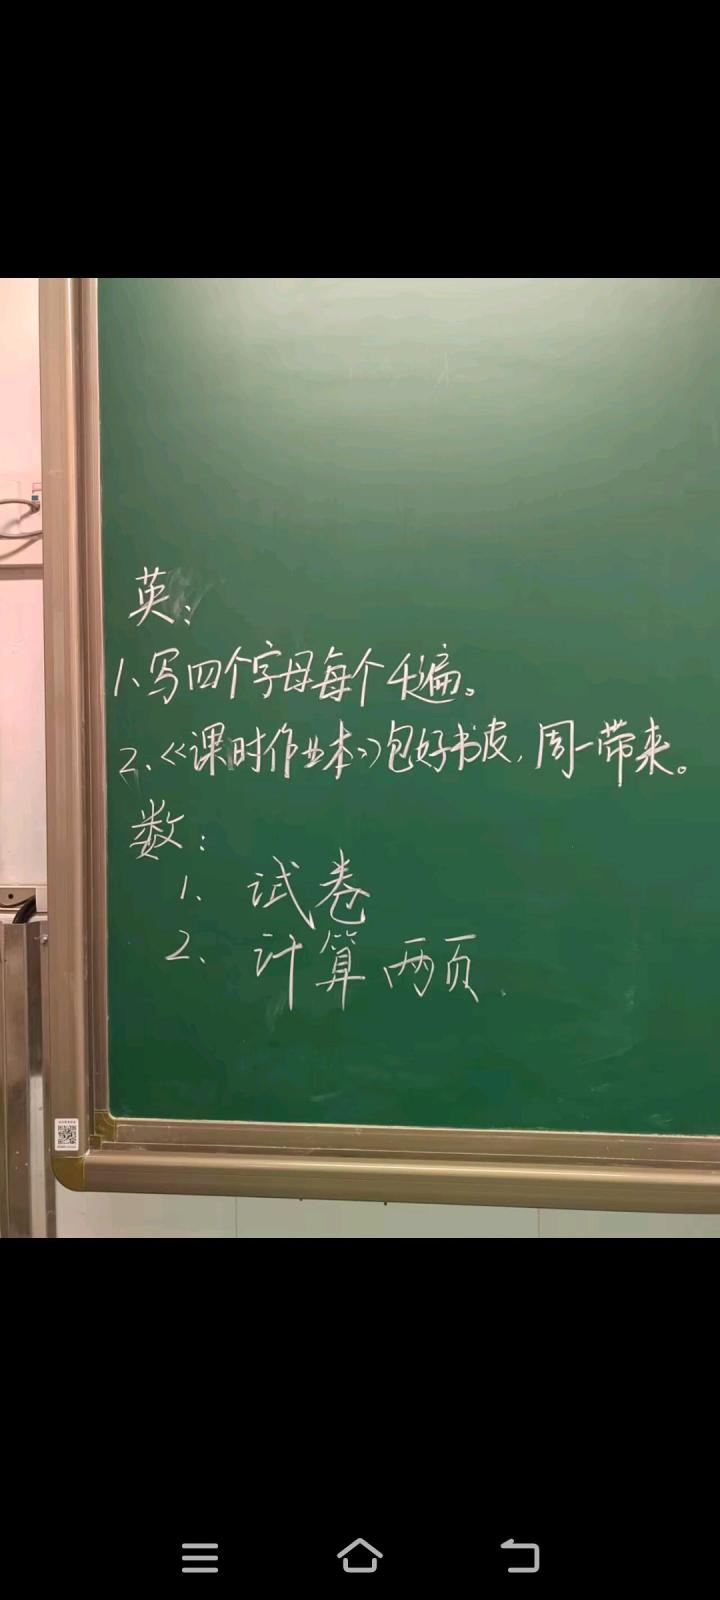 英:
1、写四个字母每个千遍。
2、《课时作业本》包好书皮,周一带来。
数:
1、试卷
2、计算两页.